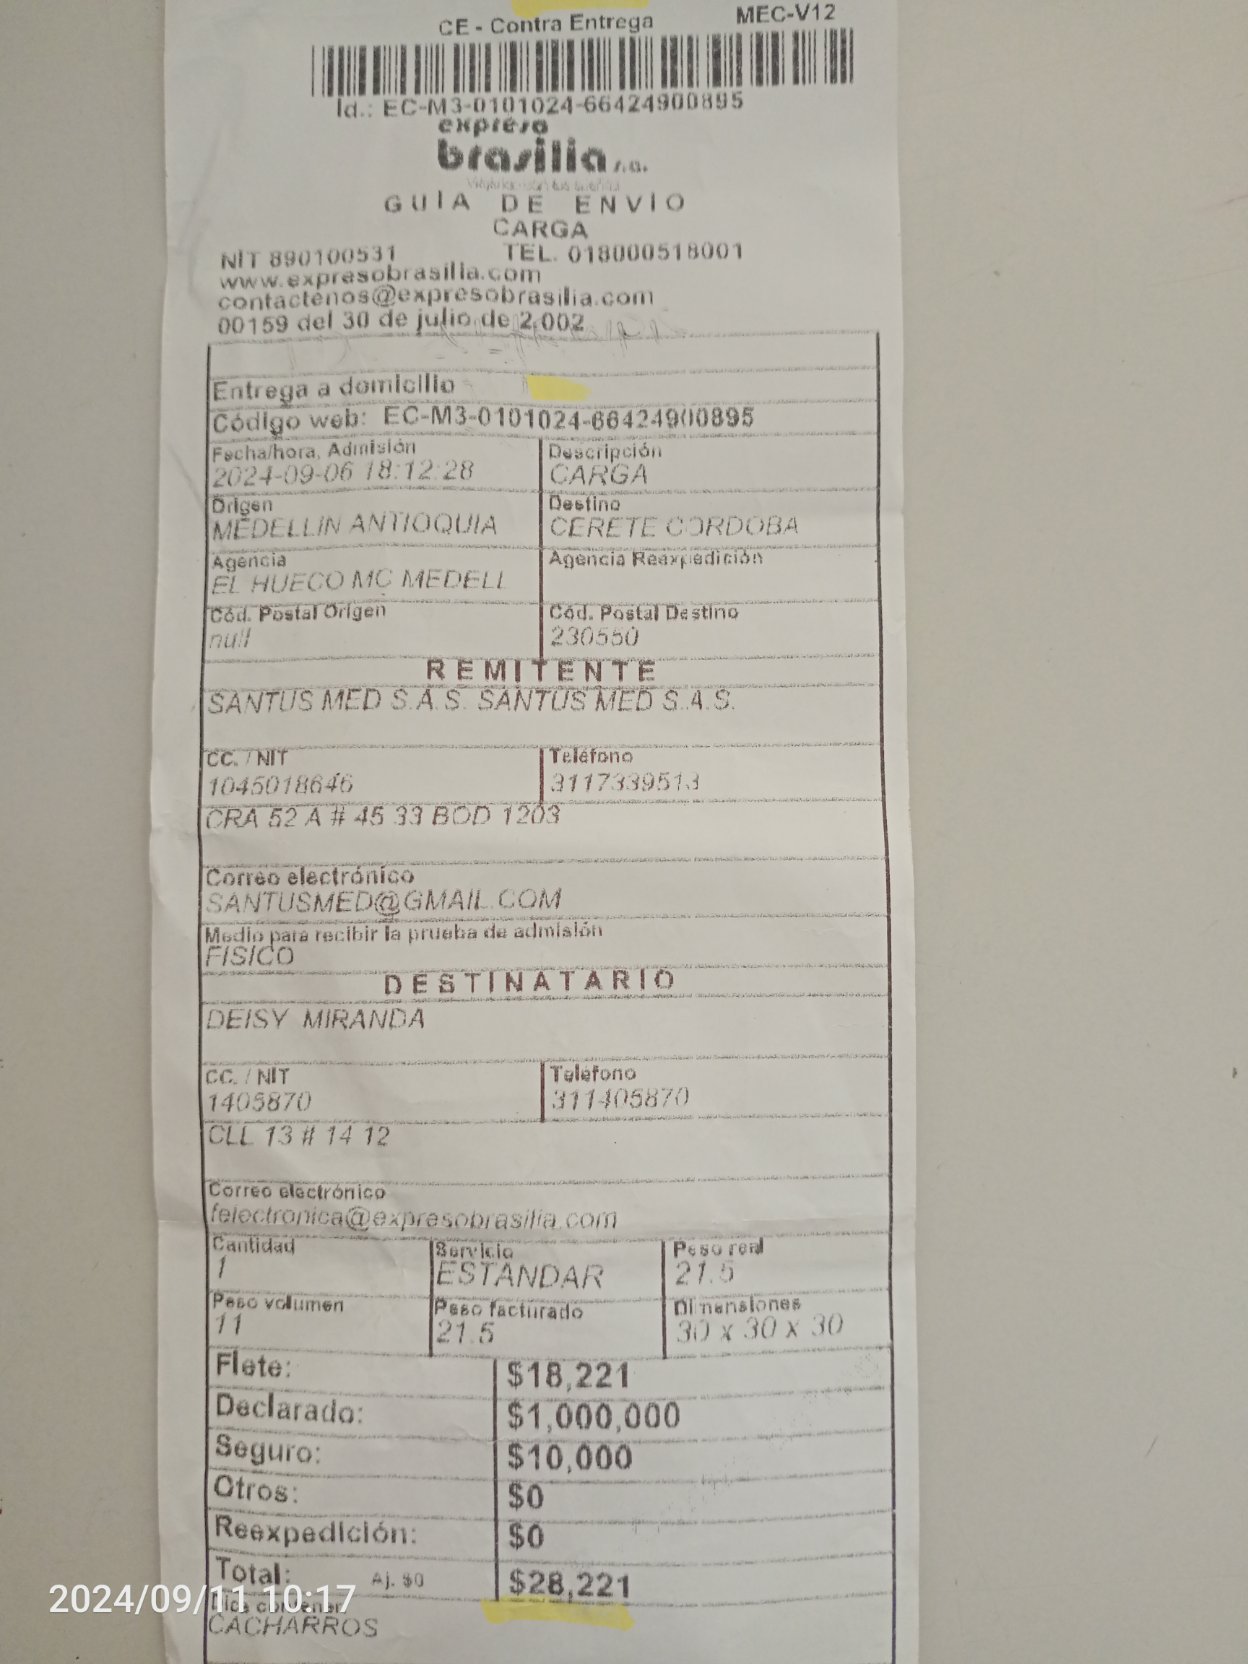 CE - Contra Entrega MEC-V12
Id.: EC-M3-0101024-66424900895
expreso
brasilia s.a.
GUIA DE ENVIO
CARGA
NIT 890100531 TEL. 018000518001
www.expresobrasilia.com
contactenos@expresobrasilia.com
00159 del 30 de julio de 2.002
Entrega a domicilio
Código web: EC-M3-0101024-66424900895
Fecha/hora, Admisión Descripción
2024-09-06 18:12:28 CARGA
Origen Destino
MEDELLIN ANTIOQUIA CERETE CORDOBA
Agencia Agencia Reexpedición
EL HUECO MC MEDELL
Cód. Postal Origen Cód. Postal Destino
null 230550
REMITENTE
SANTUS MED S.A.S. SANTUS MED S.A.S.
CC. / NIT Teléfono
1045018646 3117339513
CRA 52 A # 45 33 BOD 1203
Correo electrónico
SANTUSMED@GMAIL.COM
Medio para recibir la prueba de admisión
FISICO
DESTINATARIO
DEISY MIRANDA
CC. / NIT Teléfono
1405870 311405870
CLL 13 # 14 12
Correo electrónico
felectronica@expresobrasilia.com
Cantidad Servicio Peso real
1 ESTANDAR 21.5
Peso volumen Peso facturado Dimensiones
11 21.5 30 x 30 x 30
Flete: $18,221
Declarado: $1,000,000
Seguro: $10,000
Otros: $0
Reexpedición: $0
Total: Aj. $0 $28,221
2024/09/11 10:17
Dice contener
CACHARROS